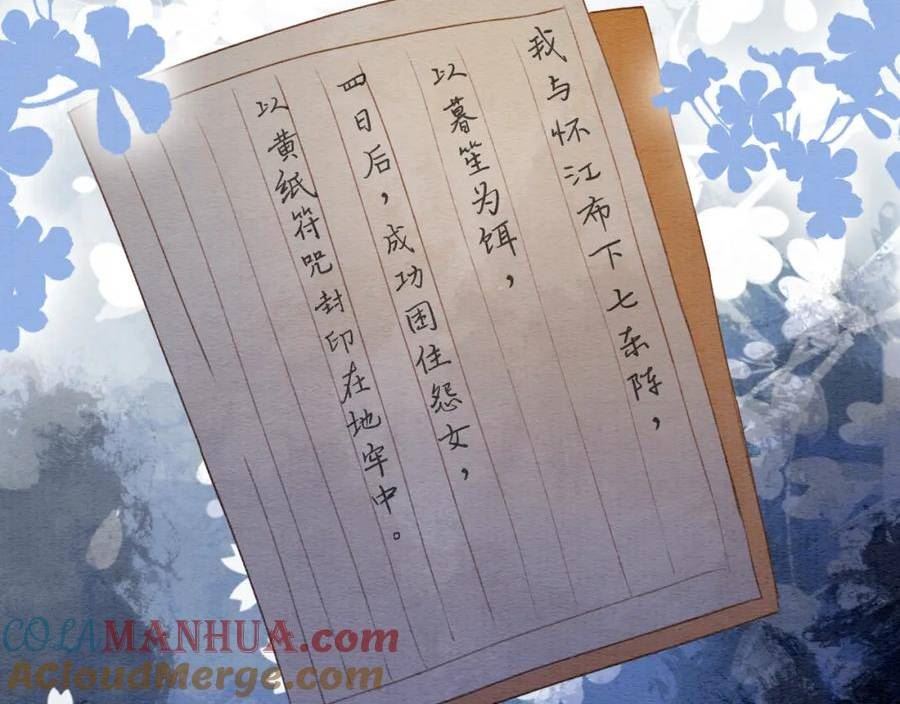 我与怀江布下七杀阵，
以暮笙为饵，
四日后，成功困住怨女，
以黄纸符咒封印在地牢中。
COLAMANHUA.com
ACloudMerge.com